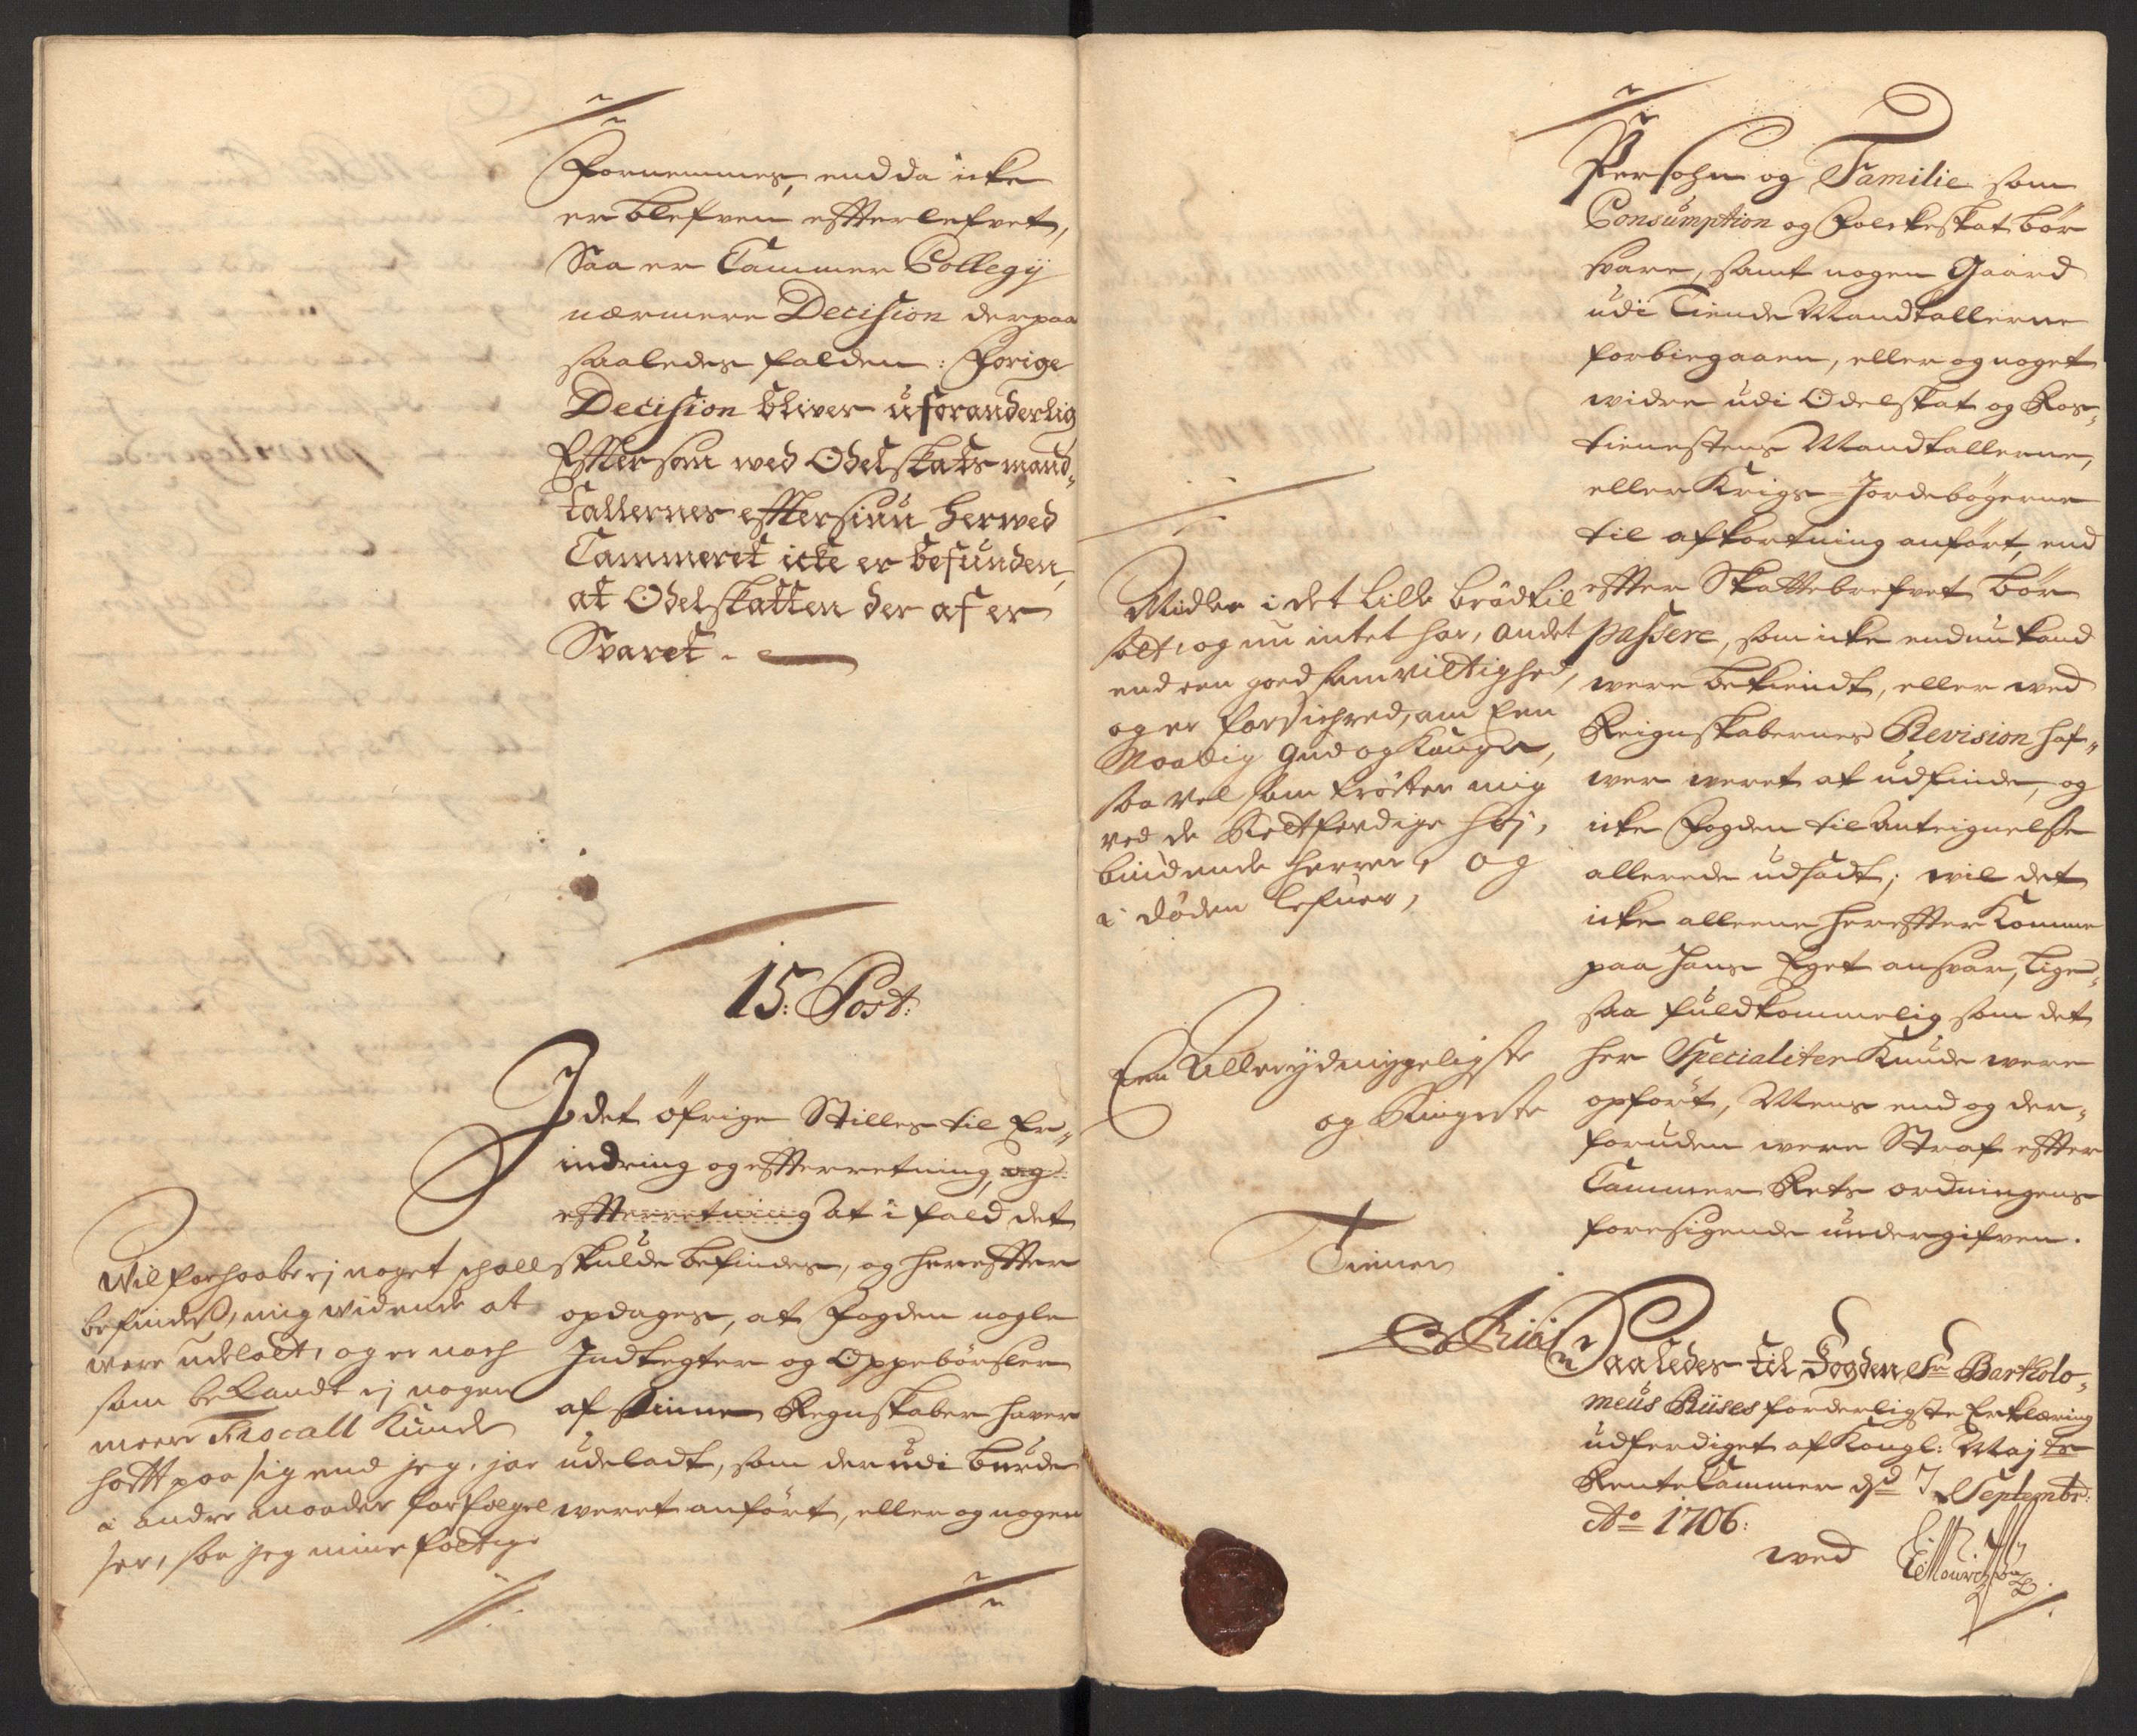 Fornemmes, end da icke
er blefven efterlefvet,
Saa er Cammer Collegij
nærmere Decision derpaa
saaledes falden: Forige
Decision bliver uforanderlig
Effter som wed Odelskats mand-
tallernes effter siun herwed
Cammeret icke er befunden,
at Odelskatten der af er
Svaret.
15. Post:
I det öfrige Stilles til Er-
indring og efterretning, og
efterretning at i fald det
skulde befindes, og herefter
opdages, at fogden nogle
Indtegter og Oppebörsler
af sinne Regnskaber haver
udeladt, som der udi burde
weret anfört, eller og nogen
Wil forhaabe ej noget schall
befindes, mig vidende at
were udeladt, og er nock
som bekandt ej nogen
meere kunde
hafft paa sig end jeg, jae
i andre maader forfølgel
ser, saa jeg mine fattige
Persohn og Familie som
Consumption og Folckeskat bör
svare, samt nogen Gaard
udi Tiende Mandtallerne
forbiegaaen, eller og noget
widre udi Odelskat og Ros-
tienestens Mandtallerne,
eller Krigs-Jordebögerne
til afkortning anfört, end
efter Skattebrefvet bör
passere, som icke endnu kand
were bekiendt, eller wed
Reignskabernes Revision haf-
wer weret at udfinde, og
icke fogden til anteignelse
allerede udsadt; wil det
icke alleene herefter komme
paa hans Eget ansvar, lige-
saa fuldkommelig som det
her Specialiter kunde were
opfört, Mens end og der-
foruden were Straf efter
Cammer Rets ordningens
foresigende undergifven.
Midler i det lille brød til
satt, og nu intet har, andet
end een goed samvittighed,
og er forsichred, om Een
Naadig Gud og Konge,
saa vel som trøster mig
ved de Rettferdige høj,
biudende herrer, og
i døden lefuer,
Een Allerydmygeligste
og Ringeste
Tiener
Saaledes til Fogden Sr Bartholo-
meus Riises forderligste Erklæring
udferdiget af Kongl: Mayts
Rente Cammer dd 7 Septembr:
Ao 1706:
wed